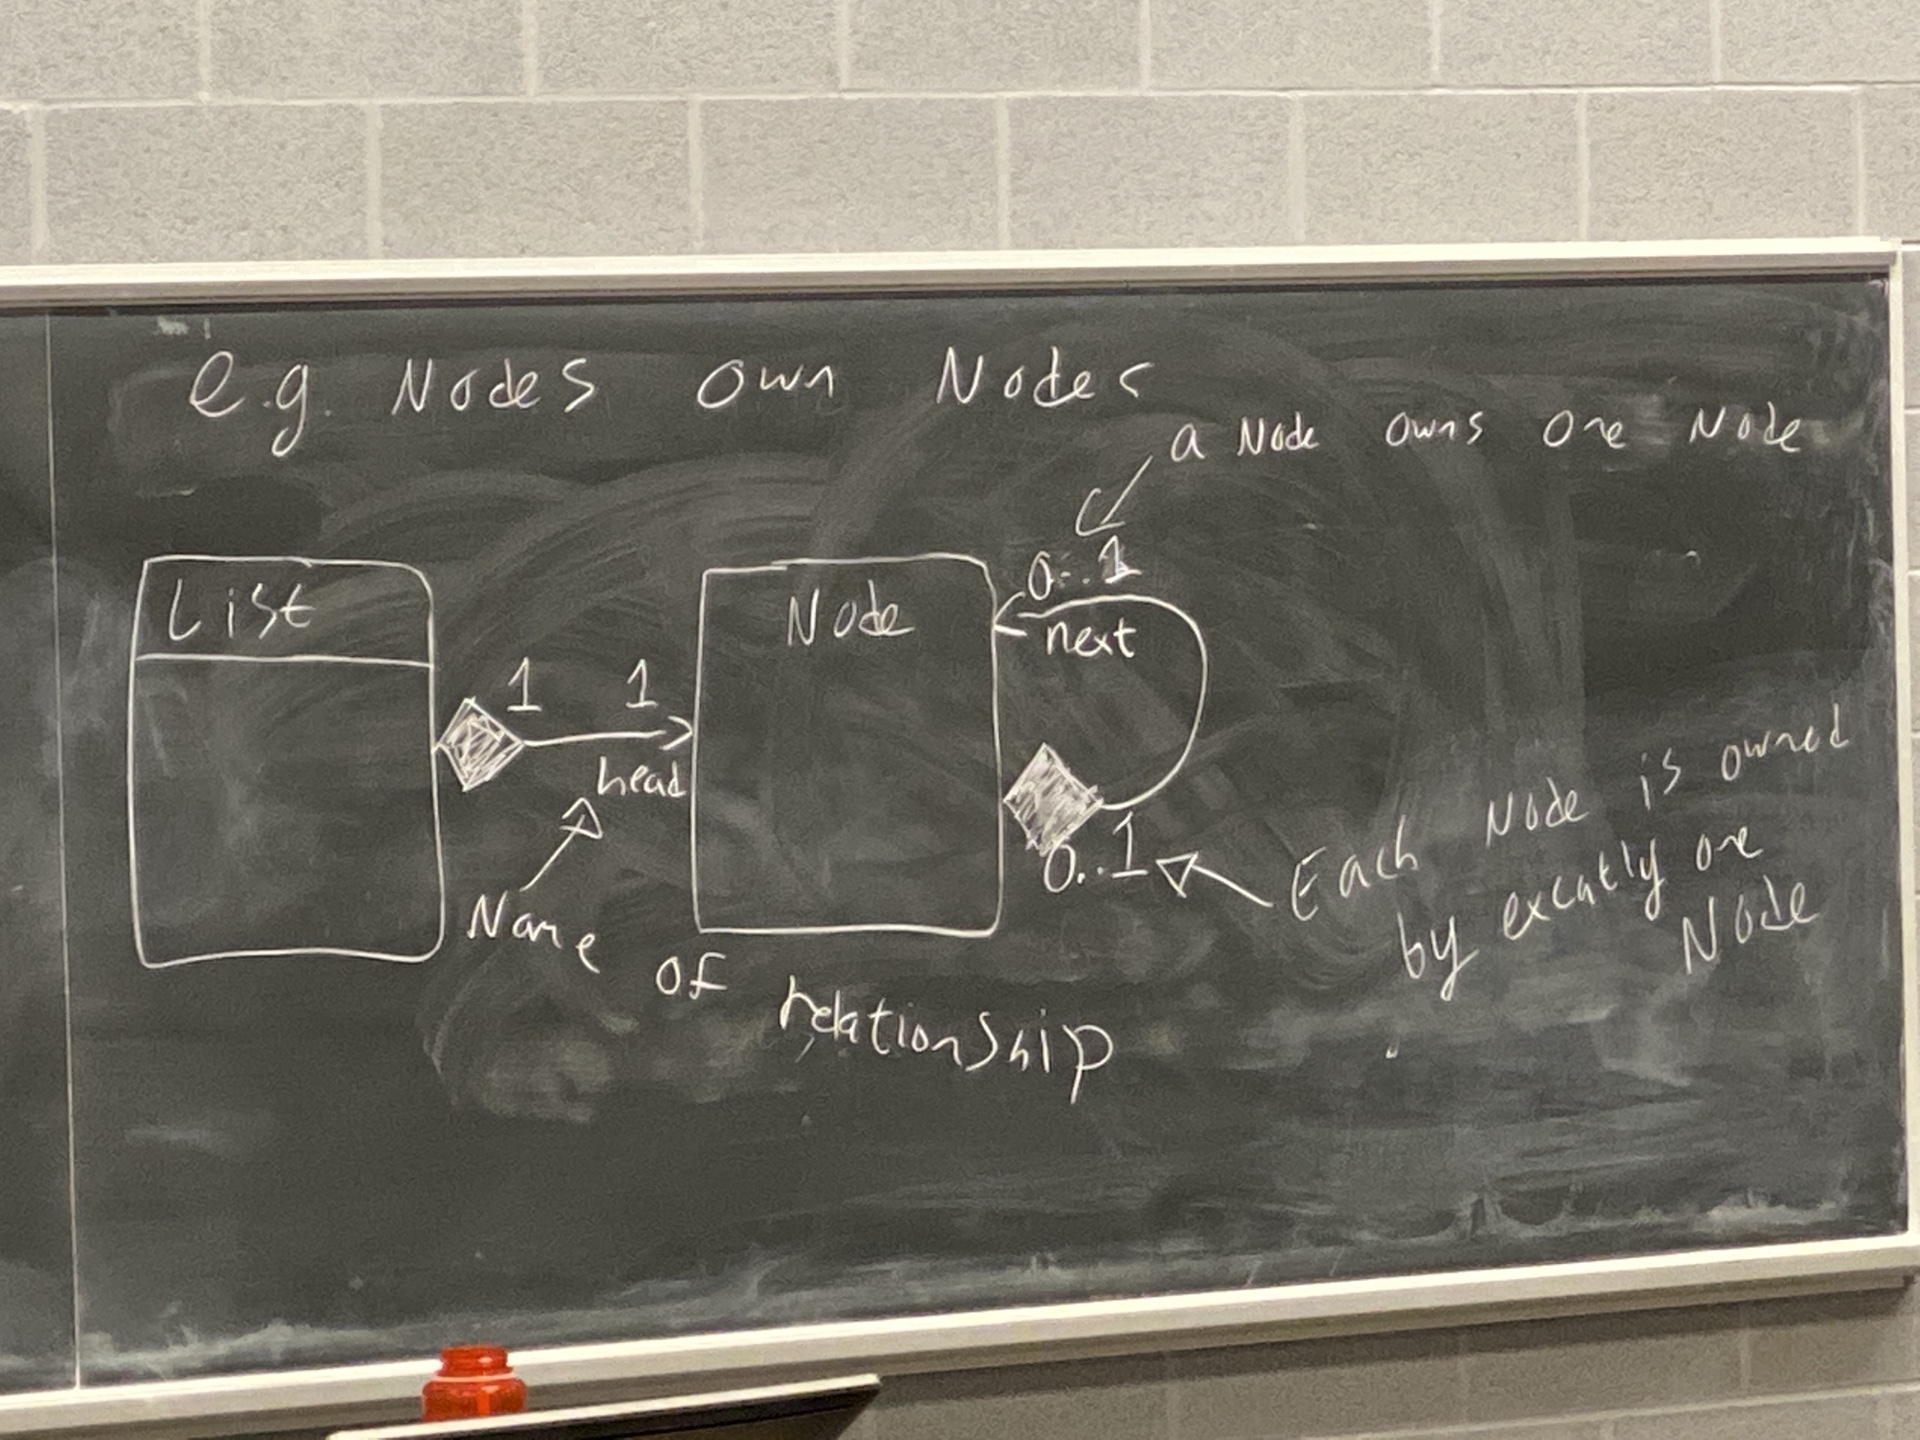 e.g. Nodes own Nodes
a Node owns one Node
List
1 1
head
Name of relationship
Node
0..1
next
0..1
Each Node is owned
by excatly one
Node